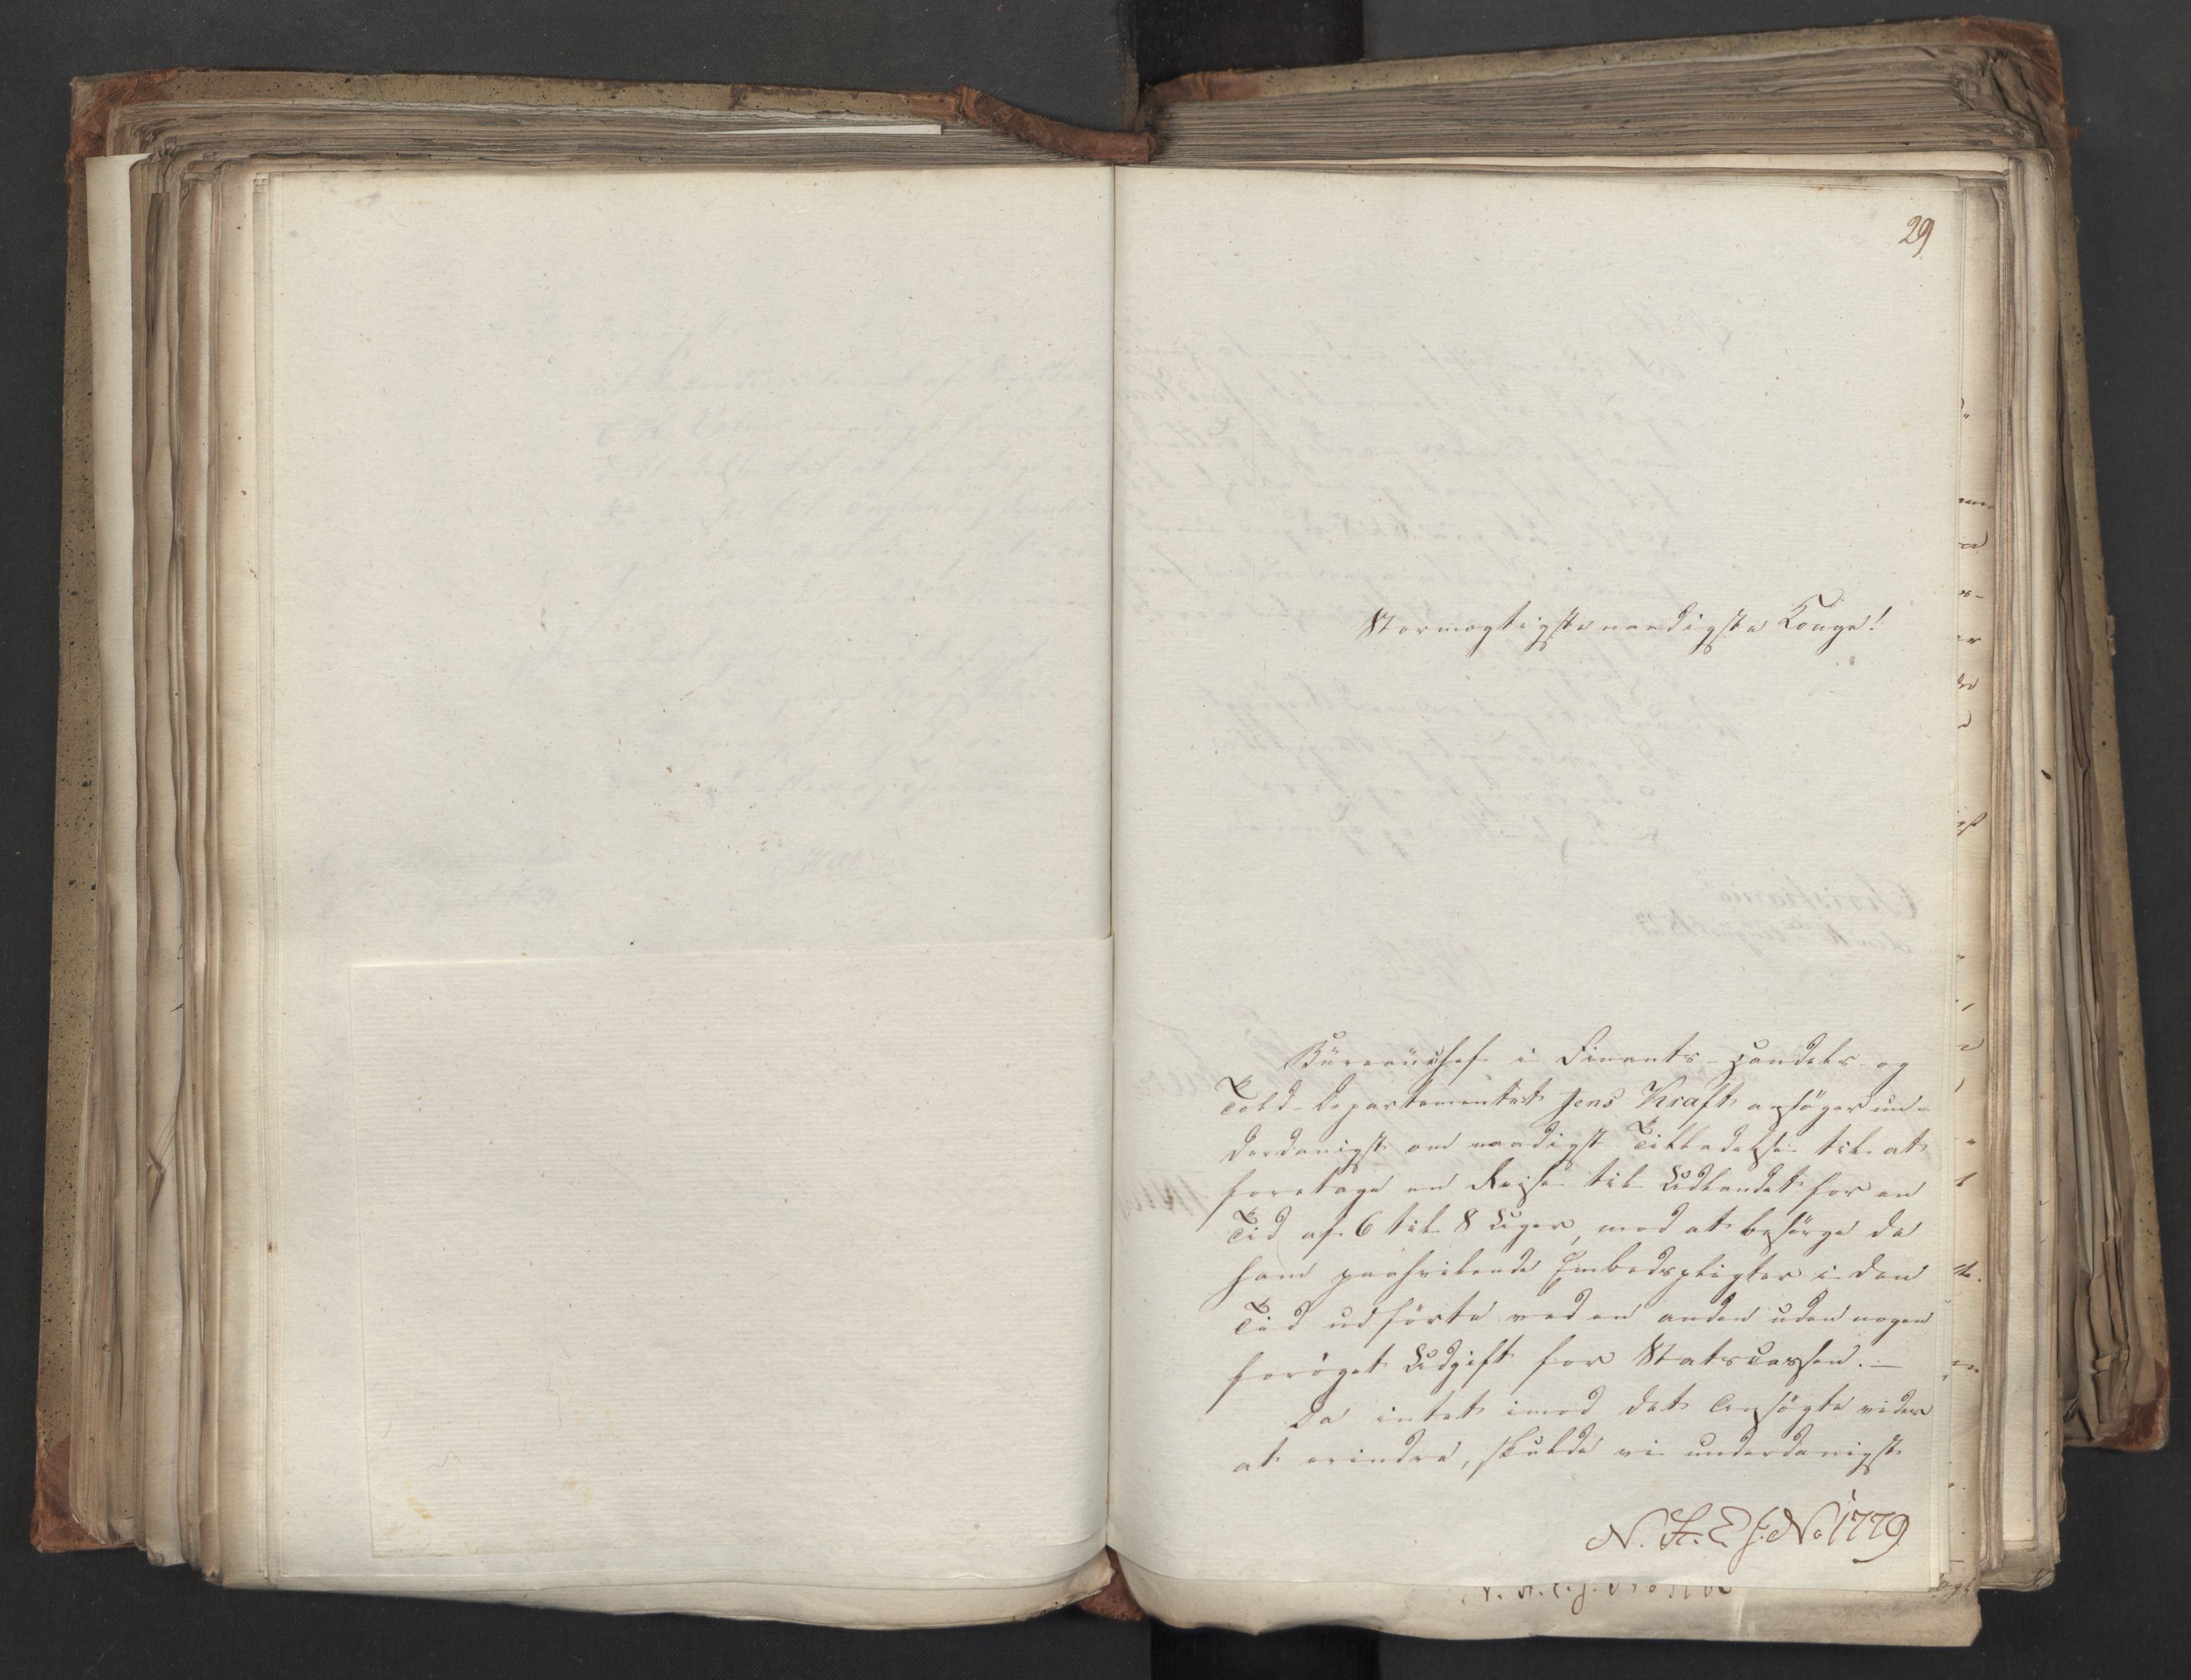 29
Stormægtigste naadigste Konge!
Büreauchef i Finants- Handels- og
Told-Departementet Jens Kraft ansøger un-
derdanigst om naadigst Tilladelse til at
foretage en Reise til Udlandet for en
Tid af 6 til 8 Uger, mod at besørge de
ham paahvilende Embedspligter i den
Tid udførte ved en anden uden nogen
forøget Udgift for Statscassen. —
Da intet imod det Ansøgte vides
at erindre, skulde vi underdanigst
N. St. E. J. No 1779